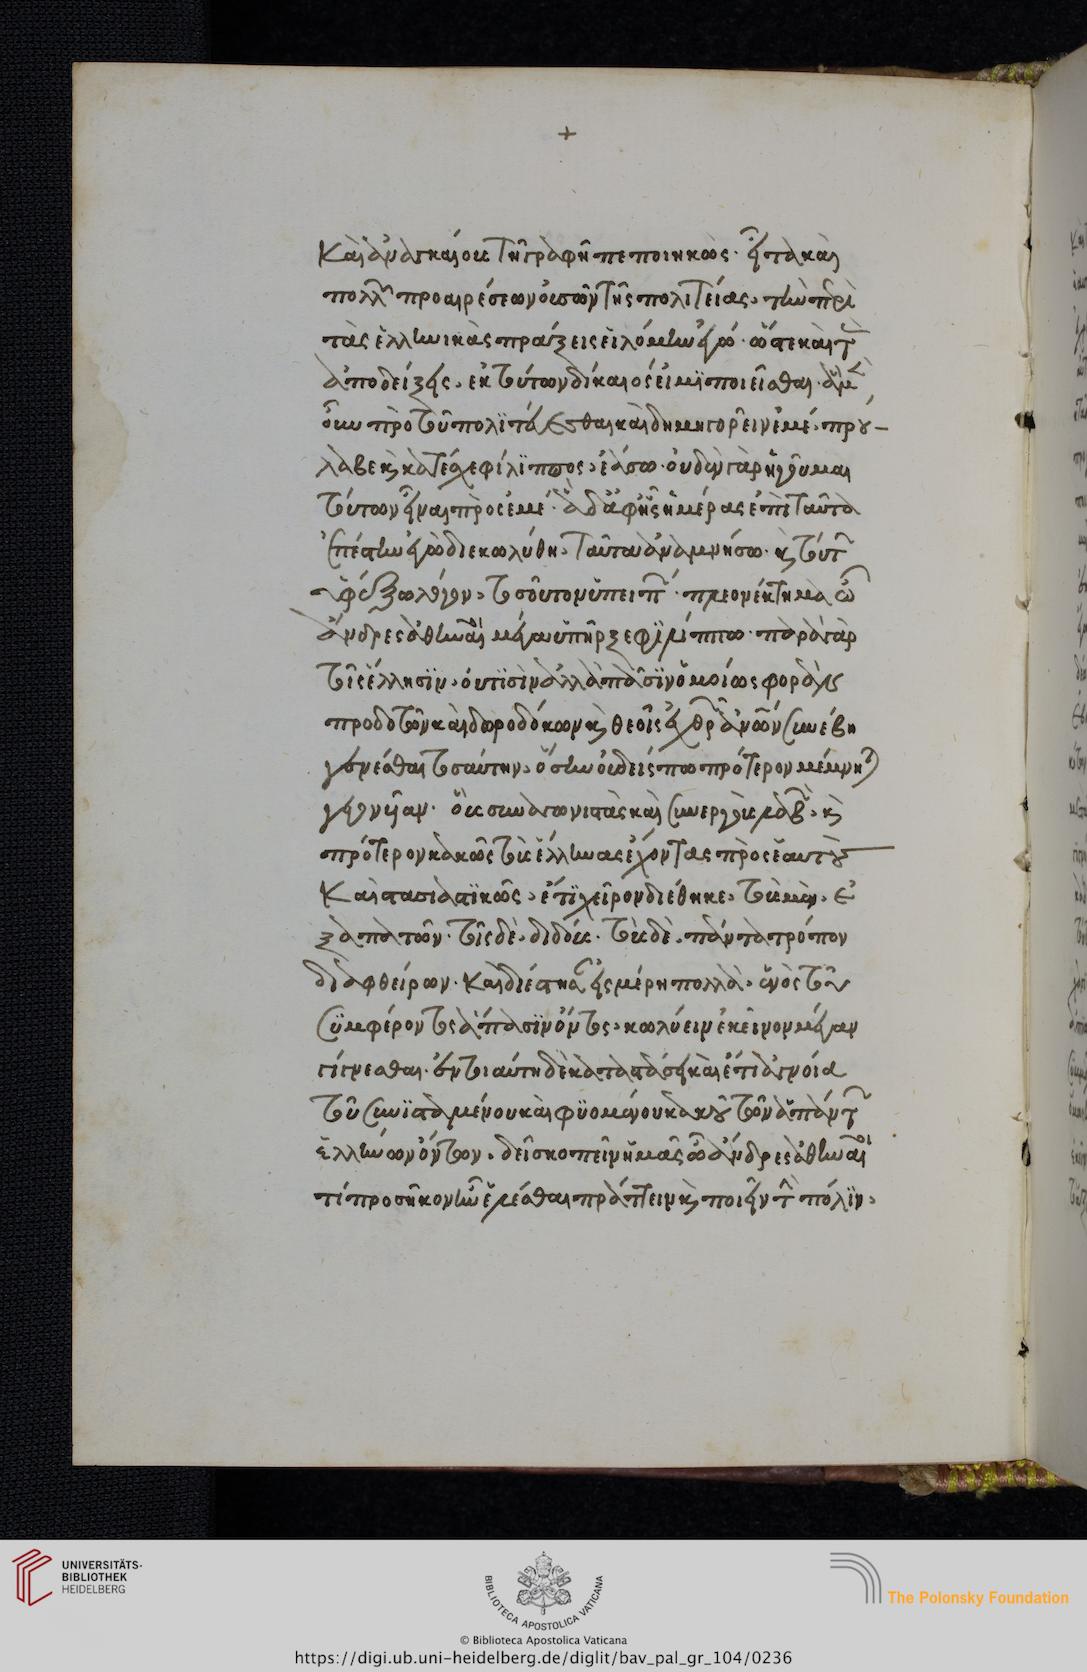 +
καὶ ἀναγκαίους τῆ γραφῆ πεποιηκώς· εἶτα καὶ
πολλῶν προαιρέσεων οὐσῶν τῆς πολιτείας, τὴν περὶ
τὰς ἑλληνικὰς πράξεις εἱλόμην ἐγώ· ὥστε καὶ τὰς
ἀποδείξεις, ἐκ τούτων δίκαιός εἰμι ποιεῖσθαι· ἃ μὲν
οὖν πρὸ τοῦ πολιτεύεσθαι καὶ δημηγορεῖν ἐμέ, πρού-
λαβε καὶ κατέσχε φίλιππος, ἐάσω· οὐδὲν γὰρ ἡγοῦμαι
τούτων εἶναι πρὸς ἐμέ· ἃ δ' ἀφ' ἧς ἡμέρας ἐπὶ ταῦτα
ἐπέστην ἐγὼ διεκωλύθη, ταῦτα ἀναμνήσω· καὶ τούτων
ὑφέξω λόγον, τοσοῦτον ὑπειπών· πλεονέκτημα ὦ
ἄνδρες ἀθηναῖοι μέγα ὑπῆρξε φιλίππω· παρὰ γὰρ
τοῖς ἕλλησιν, οὐ τισὶν ἀλλὰ πᾶσιν ὁμοίως φορὰν
προδοτῶν καὶ δωροδόκων καὶ θεοῖς ἐχθρῶν ἀνθρώπων συνέβη
γενέσθαι τοσαύτην, ὅσην οὐδείς πω πρότερον μέμνηται
γεγονυῖαν· οὓς συναγωνιστὰς καὶ συνεργοὺς λαβὼν, καὶ
πρότερον κακῶς τοὺς ἕλληνας ἔχοντας πρὸς ἑαυτοὺς
καὶ στασιαστικῶς, ἔτι χεῖρον διέθηκε, τοὺς μὲν, ἐ
ξαπατῶν· τοῖς δὲ, διδούς· τοὺς δὲ, πάντα τρόπον
διαφθείρων· καὶ διέστησεν εἰς μέρη πολλὰ, ἑνὸς τοῦ
συμφέροντος ἅπασιν ὄντος, κωλύειν ἐκεῖνον μέγαν
γίγνεσθαι· ἐν τοιαύτη δὲ καταστάσει καὶ ἔτι ἀγνοία
τοῦ συνισταμένου καὶ φυομένου κακοῦ τῶν ἁπάντων
ἑλλήνων ὄντων, δεῖ σκοπεῖν ὑμᾶς ὦ ἄνδρες ἀθηναῖοι
τί προσῆκον ἦν ἑλέσθαι πράττειν καὶ ποιεῖν τὴν πόλιν,
UNIVERSITÄTS-
BIBLIOTHEK
HEIDELBERG
BIBLIOTECA APOSTOLICA VATICANA
The Polonsky Foundation
© Biblioteca Apostolica Vaticana
https://digi.ub.uni-heidelberg.de/diglit/bav_pal_gr_104/0236